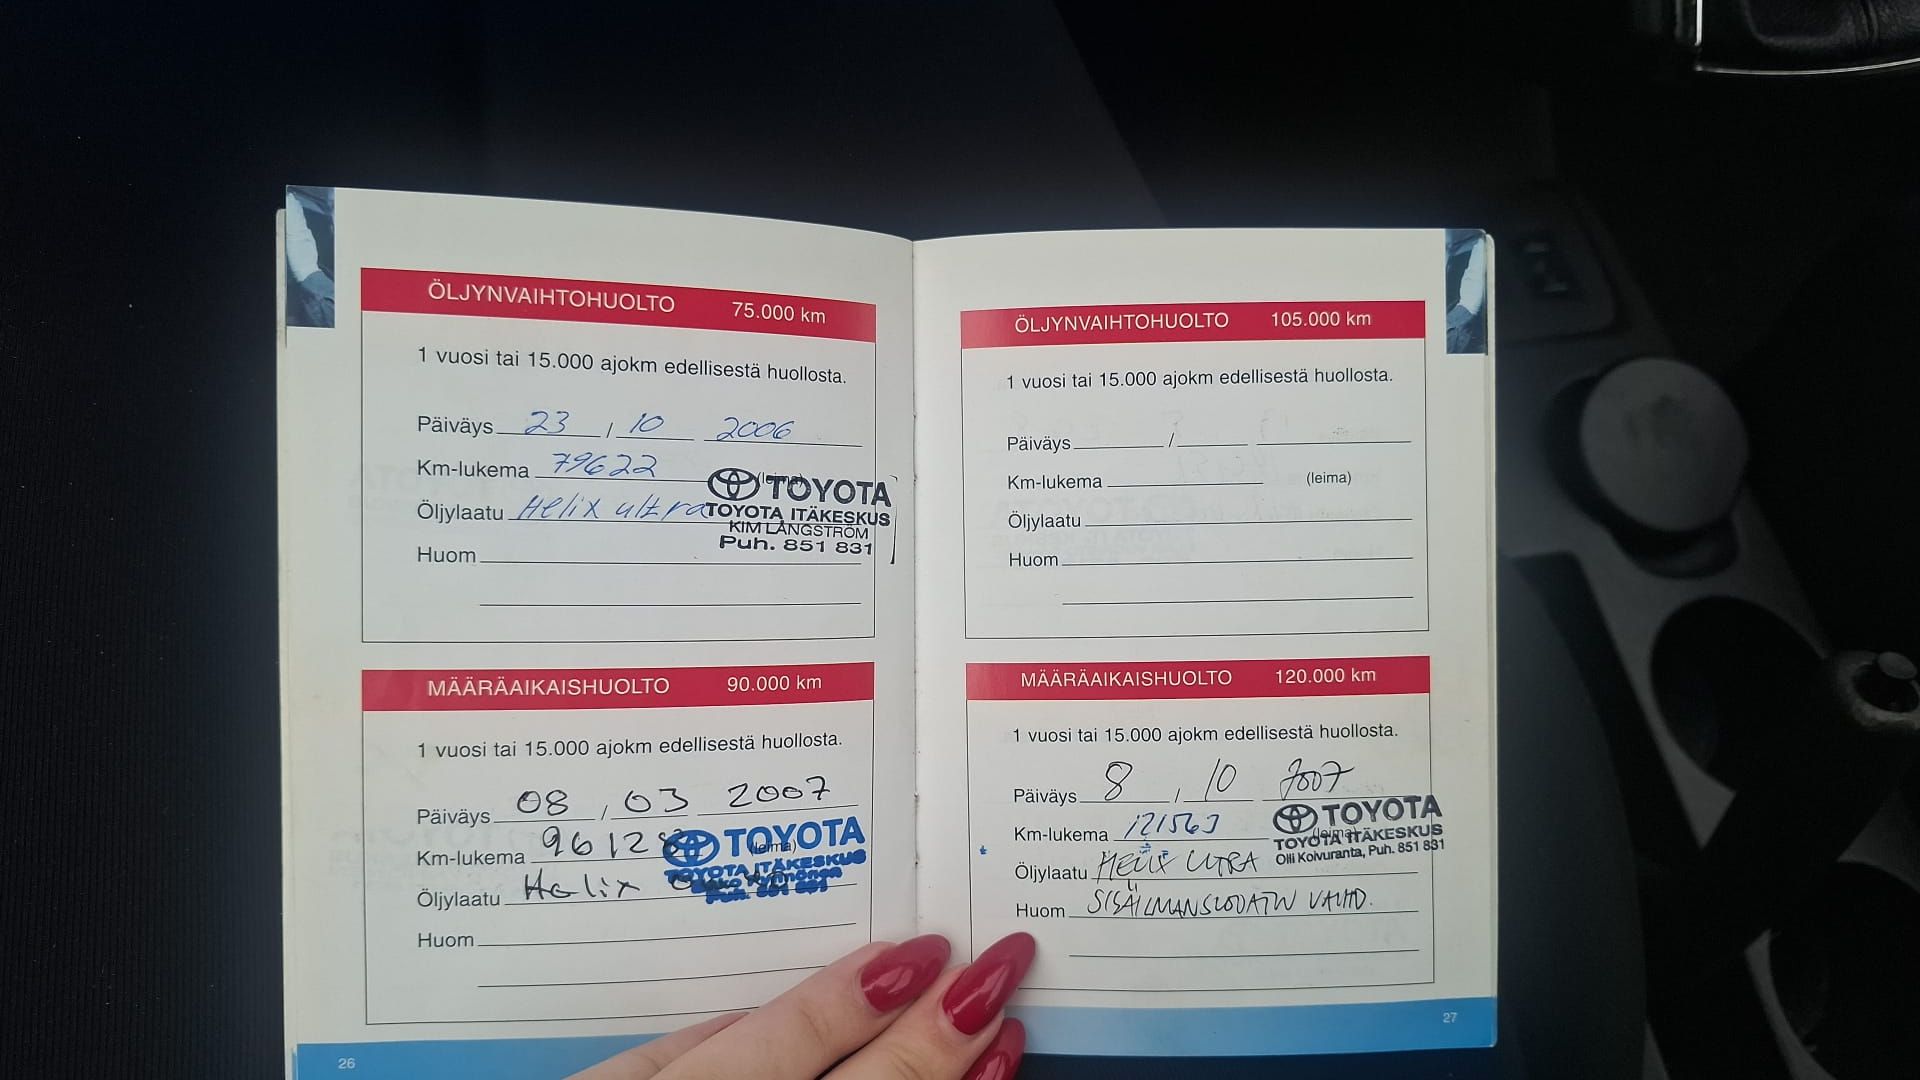 ÖLJYNVAIHTOHUOLTO 75.000 km
1 vuosi tai 15.000 ajokm edellisestä huollosta.
Päiväys 23 / 10 2006
Km-lukema 79622 (leima)
Öljylaatu Helix ultra
Huom
TOYOTA
TOYOTA ITÄKESKUS
KIM LÅNGSTRÖM
Puh. 851 831
MÄÄRÄAIKAISHUOLTO 90.000 km
1 vuosi tai 15.000 ajokm edellisestä huollosta.
Päiväys 08 / 03 2007
Km-lukema (leima)
Öljylaatu Helix
Huom
TOYOTA
TOYOTA ITÄKESKUS
Puh. 851 831
26
ÖLJYNVAIHTOHUOLTO 105.000 km
1 vuosi tai 15.000 ajokm edellisestä huollosta.
Päiväys /
Km-lukema (leima)
Öljylaatu
Huom
MÄÄRÄAIKAISHUOLTO 120.000 km
1 vuosi tai 15.000 ajokm edellisestä huollosta.
Päiväys 8 / 10 2007
Km-lukema 121563 (leima)
Öljylaatu HELIX ULTRA
Huom SISÄILMANSUODATIN VAIHD.
TOYOTA
TOYOTA ITÄKESKUS
Olli Koivuranta, Puh. 851 831
27